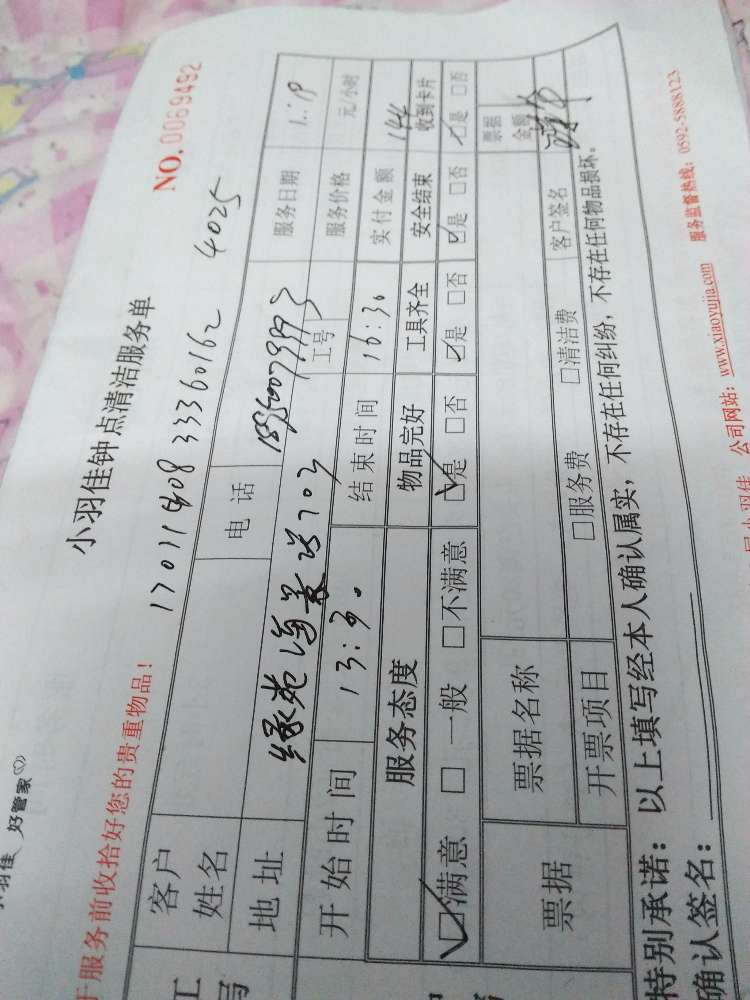 好管家
于服务前收拾好您的贵重物品!
小羽佳钟点清洁服务单
NO. 0069492
17011408 33360162 4025
客户姓名 电话 服务日期
地址 绿苑海景 703 工号 服务价格 元/小时
开始时间 13:30 结束时间 16:30 实付金额 144
服务态度 物品完好 工具齐全 安全结束 收到卡片
☑满意 □一般 □不满意 ☑是 □否 ☑是 □否 ☑是 □否 ☑是 □否
票据 票据名称 票据金额
开票项目 □服务费 □清洁费 客户签名
特别承诺：以上填写经本人确认属实，不存在任何纠纷，不存在任何物品损坏。
确认签名：
公司网站：www.xiaoyujia.com 服务监督热线：0592-5888123